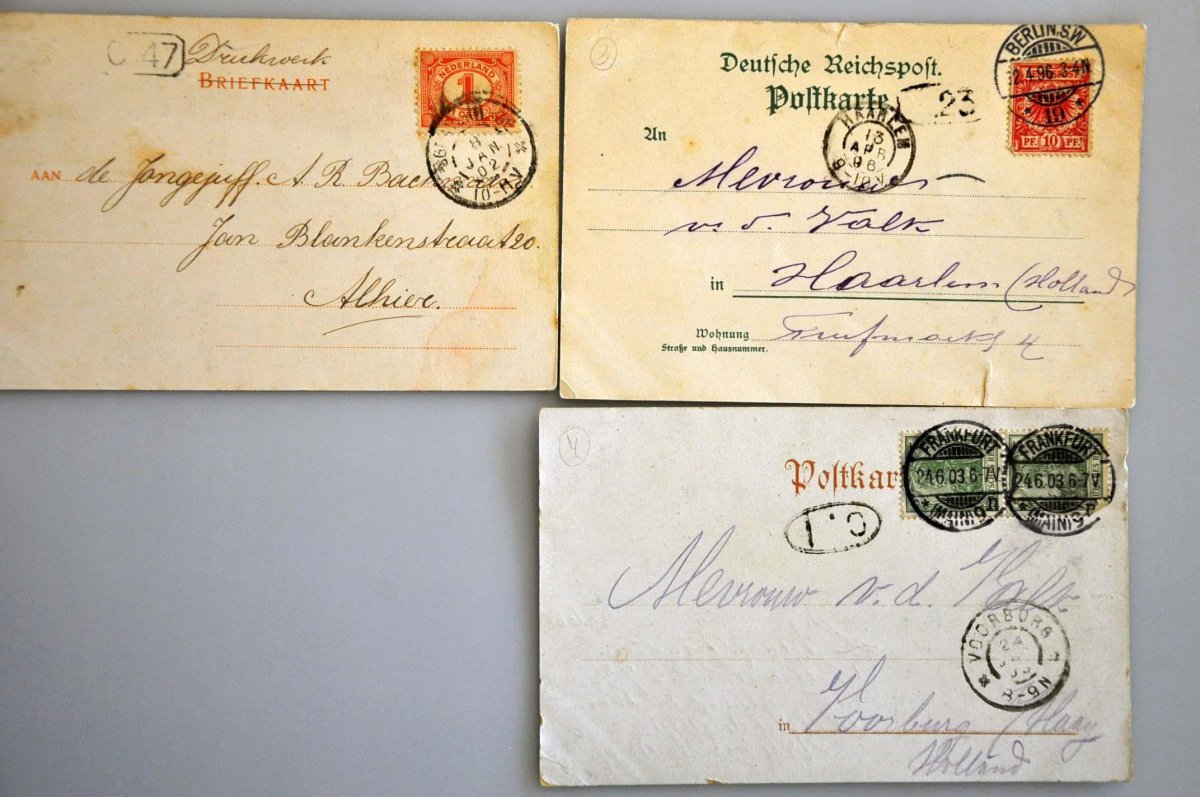 C 47
Drukwerk
BRIEFKAART
NEDERLAND
1
CENT
8
JAN
02
10-11V
AAN de Jongejuff. A. R.
Jan Blankenstraat 20.
Alhier.
3
Deutsche Reichspost.
Postkarte
23
BERLIN.S.W
12.4.96.3-4N
* 19 *
PF. 10 PF.
An
HAARLEM
13
APR
96
Mevrouw
v. d. Valk
in Haarlem (Holland)
Wohnung
Straße und Hausnummer.
4
Postkar
FRANKFURT
24.6.03.6-7V
* (MAIN) 9
FRANKFURT
24.6.03.6-7V
* (MAIN) 9
C.1
Mevrouw v. d. Valk
VOORBURG
24
8-9N
in Voorburg /Haag
Holland